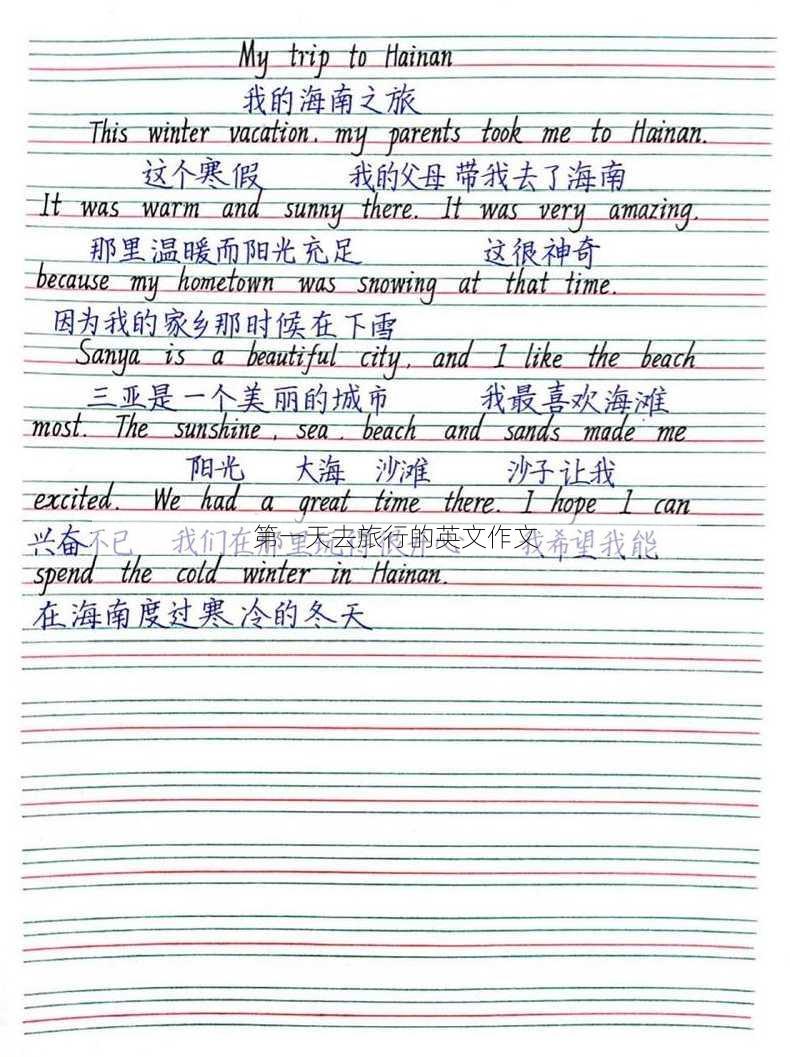 My trip to Hainan
我的海南之旅
This winter vacation, my parents took me to Hainan.
这个寒假 我的父母带我去了海南
It was warm and sunny there. It was very amazing,
那里温暖而阳光充足 这很神奇
because my hometown was snowing at that time.
因为我的家乡那时候在下雪
Sanya is a beautiful city, and I like the beach
三亚是一个美丽的城市 我最喜欢海滩
most. The sunshine, sea, beach and sands made me
阳光 大海 沙滩 沙子让我
excited. We had a great time there. I hope I can
兴奋不已 我们在那里玩得很开心 我希望我能
第一天去旅行的英文作文
spend the cold winter in Hainan.
在海南度过寒冷的冬天